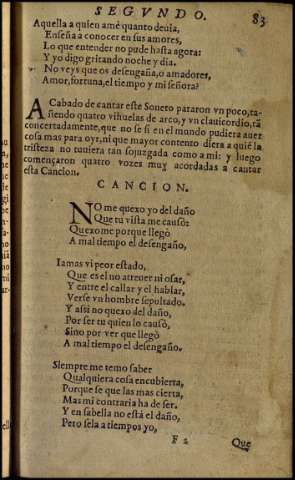 SEGVNDO. 83
Aquella a quien amè quanto deuia,
Enseña a conocer en sus amores,
Lo que entender no pude hasta agora:
Y yo digo gritando noche y dia.
No veys que os desengaña, o amadores,
Amor, fortuna, el tiempo y mi señora?
ACabado de cantar este Soneto pararon vn poco, ta-
ñiendo quatro vihuelas de arco, y vn clauicordio, tã
concertadamente, que no se si en el mundo pudiera auer
cosa mas para oyr, ni que mayor contento diera a quiẽ la
tristeza no tuuiera tan sojuzgada como a mi: y luego
començaron quatro vozes muy acordadas a cantar
esta Cancion.
CANCION.
NO me quexo yo del daño
Que tu vista me causò:
Quexome porque llegò
A mal tiempo el desengaño,
Iamas vi peor estado,
Que es el no atreuer ni osar,
Y entre el callar y el hablar,
Verse vn hombre sepultado.
Y assi no quexo del daño,
Por ser tu quien lo causò,
Sino por ver que llegò
A mal tiempo el desengaño.
Siempre me temo saber
Qualquiera cosa encubierta,
Porque se que las mas cierta,
Mas mi contraria ha de ser.
Y en sabella no està el daño,
Pero sela a tiempos yo,
F 2 Que